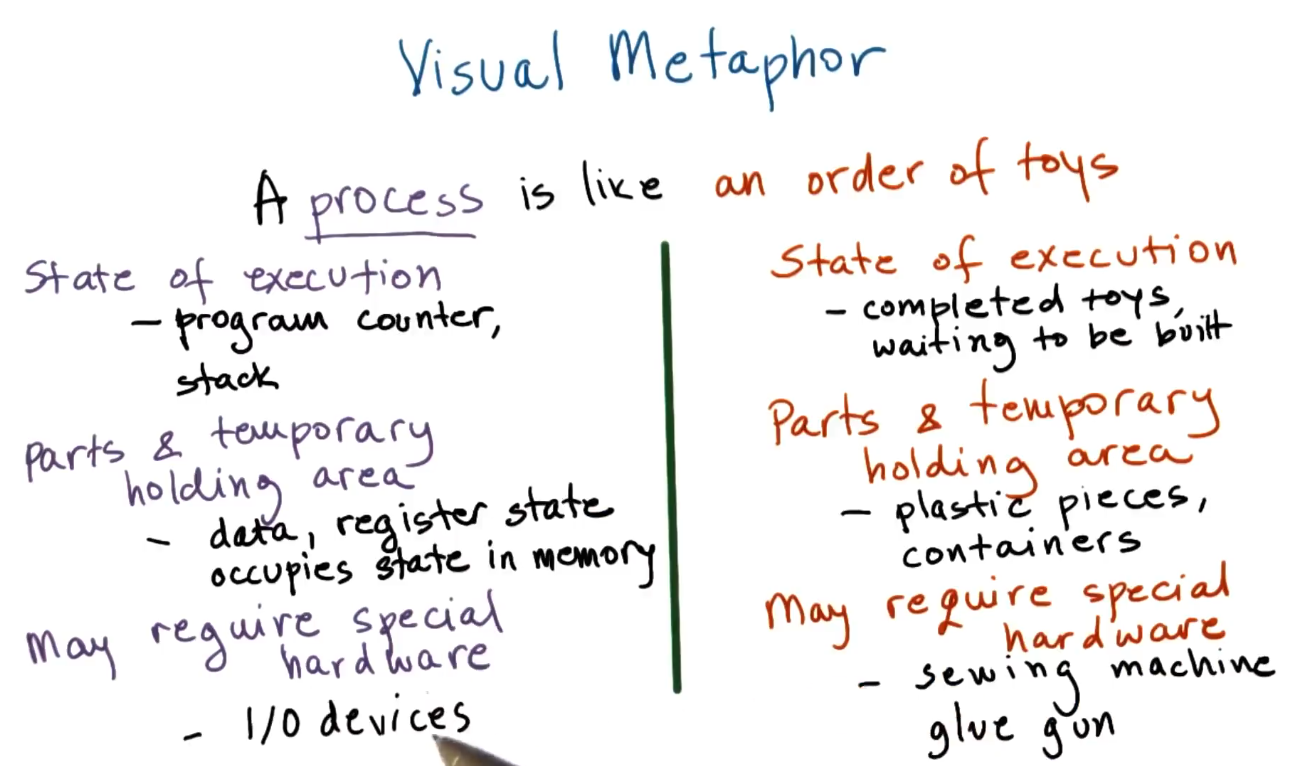 Visual Metaphor
A process is like an order of toys
State of execution
- program counter,
stack
Parts & temporary
holding area
- data, register state
occupies state in memory
May require special
hardware
- I/O devices
State of execution
- completed toys,
waiting to be built
Parts & temporary
holding area
- plastic pieces,
containers
May require special
hardware
- sewing machine
glue gun